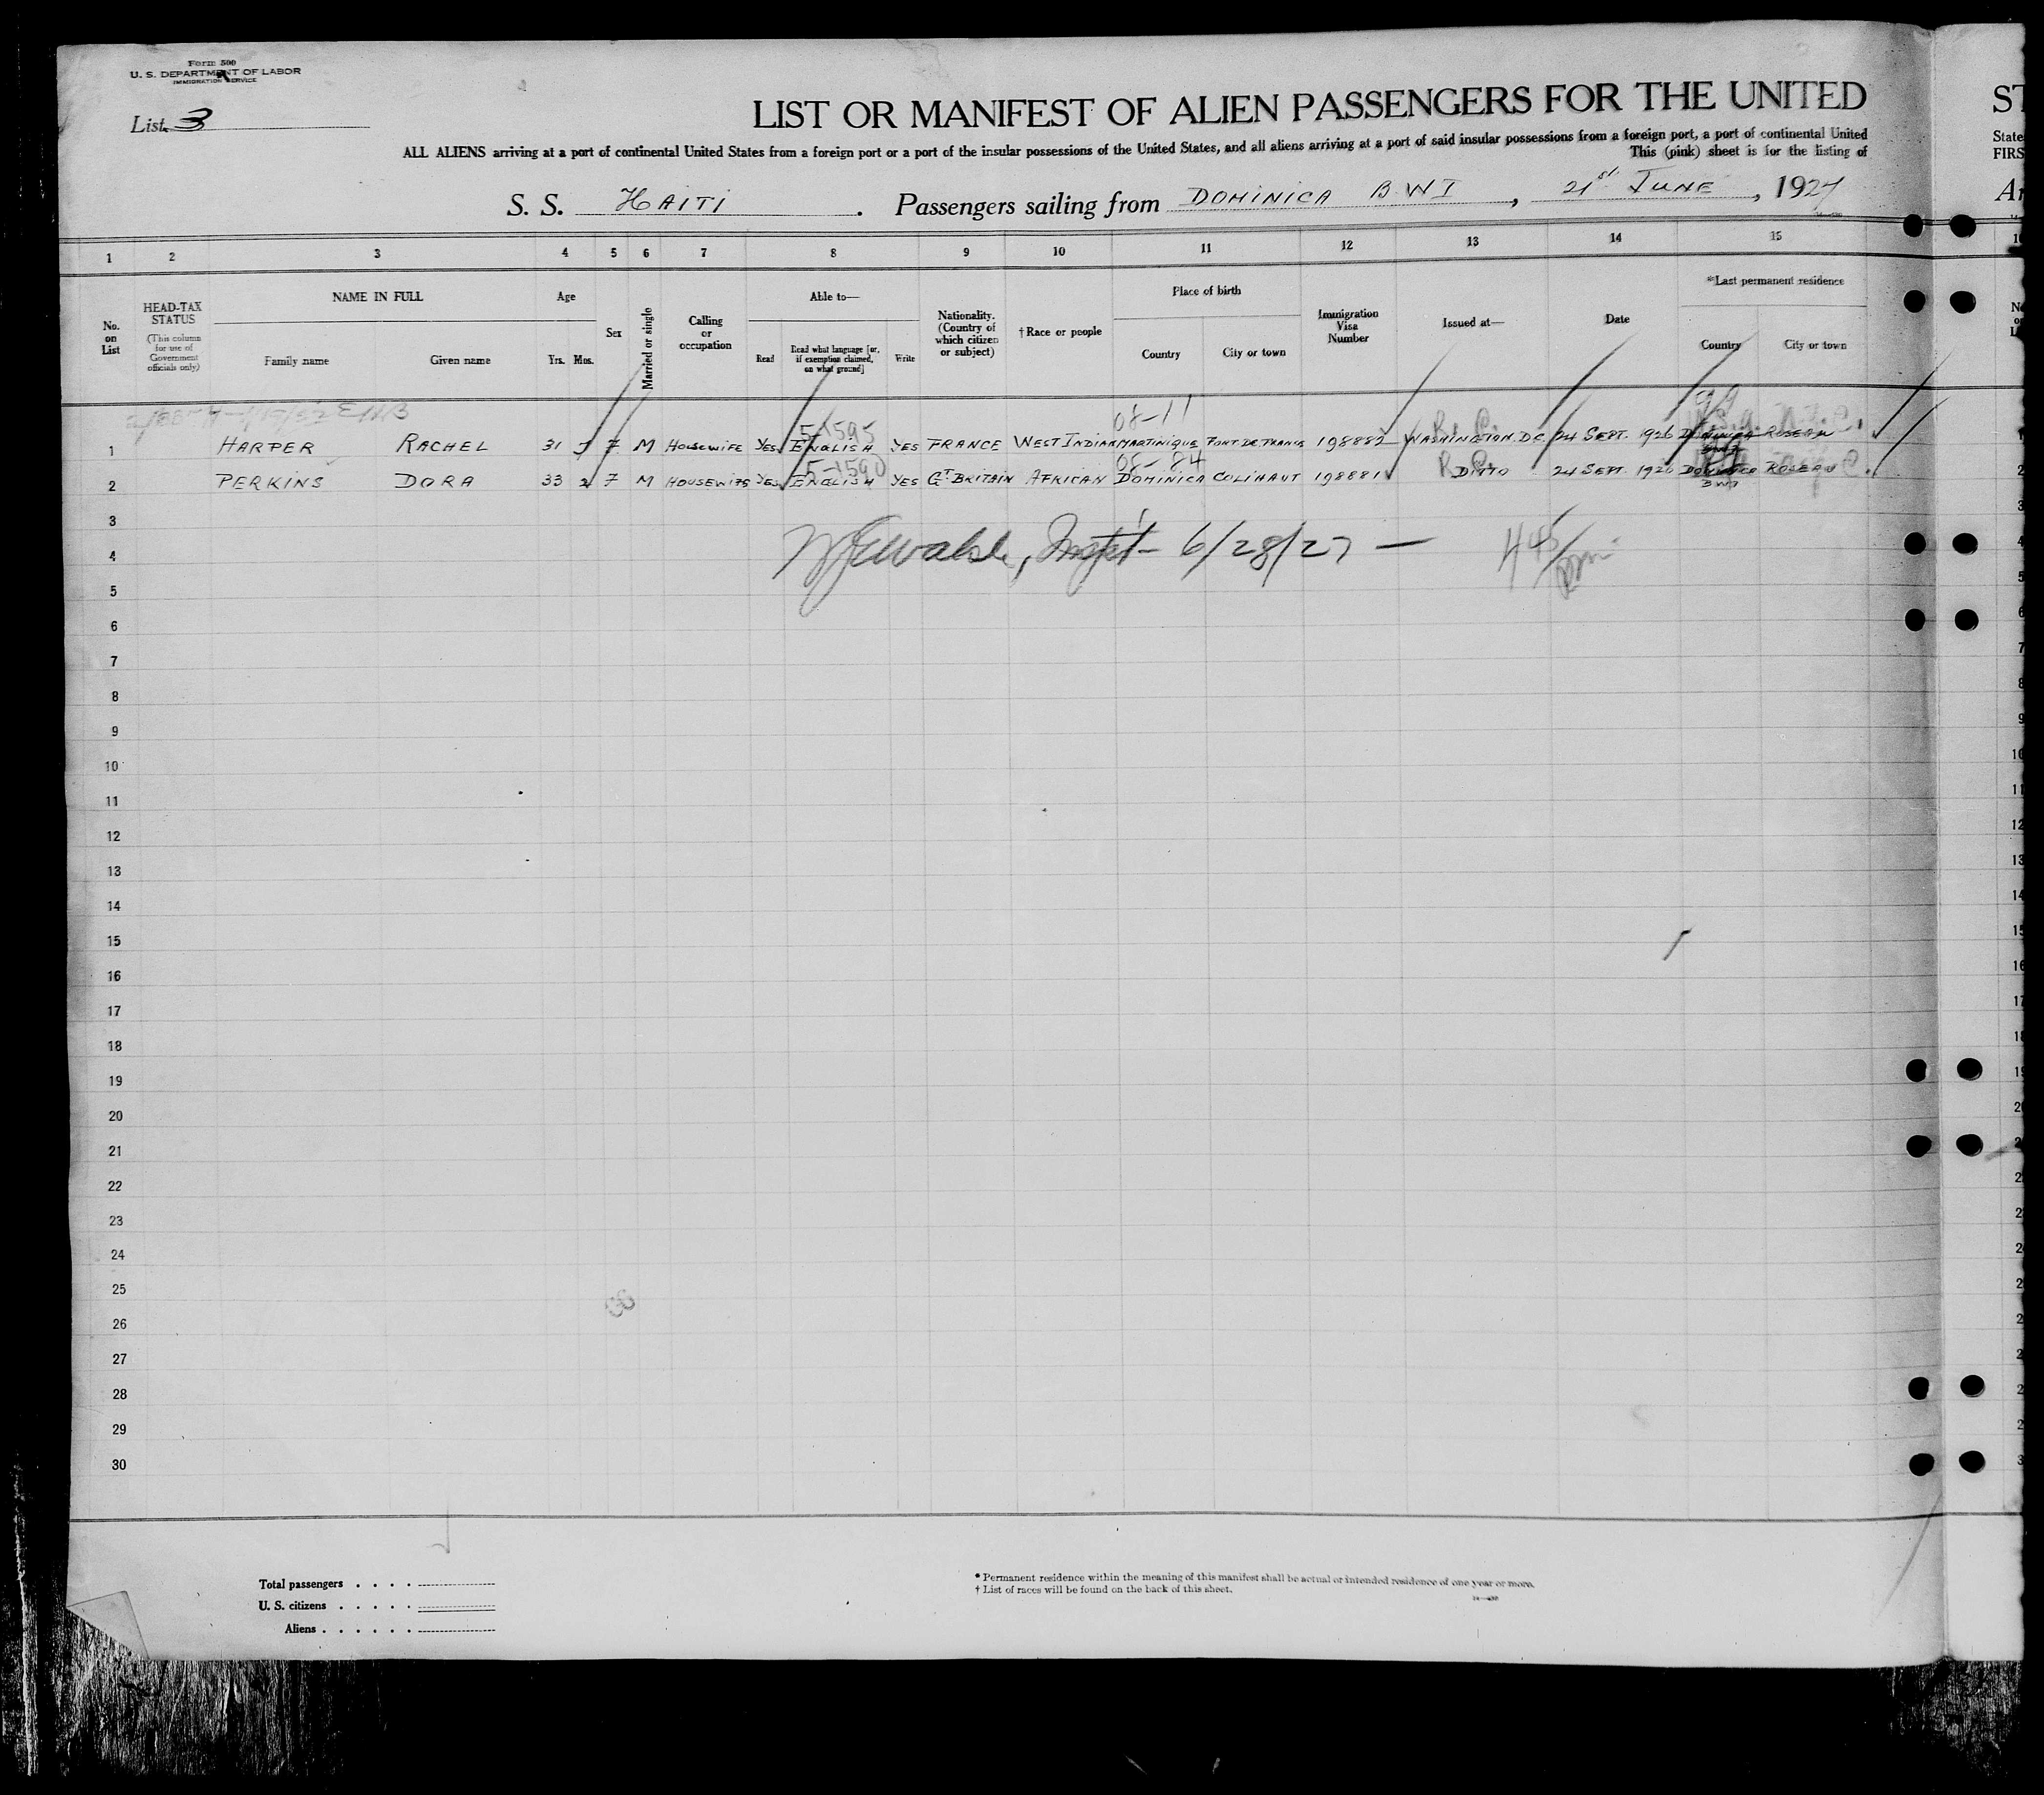 Form 500
U. S. DEPARTMENT OF LABOR
IMMIGRATION SERVICE
List 3
LIST OR MANIFEST OF ALIEN PASSENGERS FOR THE UNITED
ST
ALL ALIENS arriving at a port of continental United States from a foreign port or a port of the insular possessions of the United States, and all aliens arriving at a port of said insular possessions from a foreign port, a port of continental United
State
This (pink) sheet is for the listing of
FIRS
S. S. HAITI. Passengers sailing from DOMINICA B.W I, 21st JUNE, 1927
1 2 3 4 5 6 7 8 9 10 11 12 13 14 15
No. on List
HEAD-TAX STATUS
(This column for use of Government officials only)
NAME IN FULL
Family name Given name
Age
Yrs. Mos.
Sex
Married or single
Calling or occupation
Able to—
Read
Read what language [or, if exemption claimed, on what ground]
Write
Nationality. (Country of which citizen or subject)
† Race or people
Place of birth
Country City or town
Immigration Visa Number
Issued at—
Date
*Last permanent residence
Country City or town
5-1595 08-11
1 HARPER RACHEL 31 F M HOUSEWIFE YES ENGLISH YES FRANCE WEST INDIAN MARTINIQUE FORT DE FRANCE 198882 WASHINGTON. D.C 24 SEPT. 1926 DOMINICA ROSEAU
5-1590 08-84
2 PERKINS DORA 33 2 F M HOUSEWIFE YES ENGLISH YES GT BRITAIN AFRICAN DOMINICA COLIHAUT 198881 DITTO 24 SEPT. 1926 DOMINICA ROSEAU
BWI
3
4 6/28/27 —
5
6
7
8
9
10
11
12
13
14
15
16
17
18
19
20
21
22
23
24
25
26
27
28
29
30
Total passengers . . . .
U. S. citizens . . . . .
Aliens . . . . . .
* Permanent residence within the meaning of this manifest shall be actual or intended residence of one year or more.
† List of races will be found on the back of this sheet.